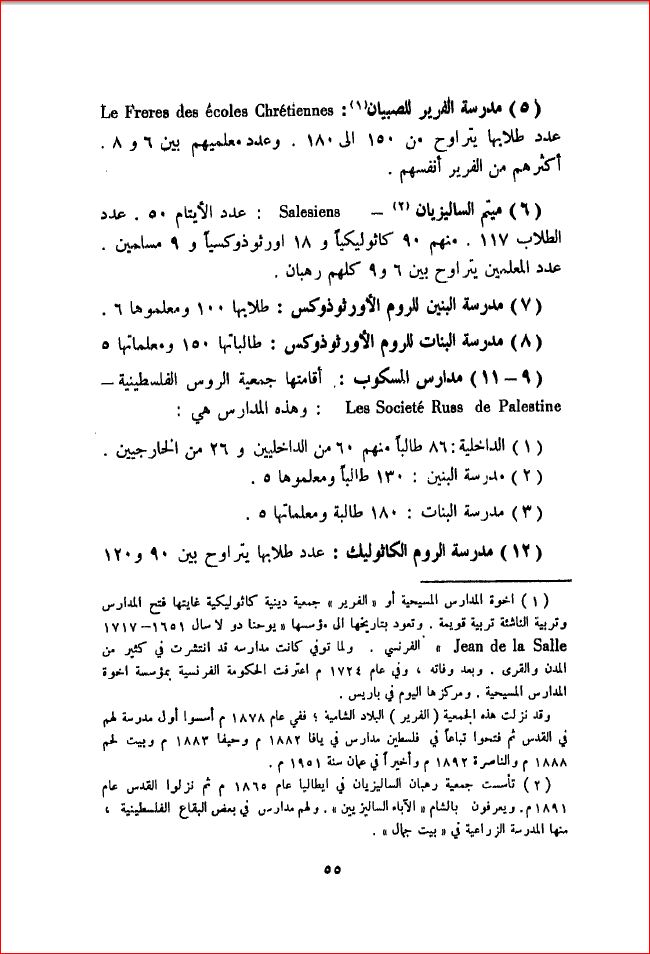 (٥) مدرسة الفرير للصبيان(١) : Le Freres des écoles Chrétiennes
عدد طلابها يتراوح من ١٥٠ الى ١٨٠ . وعدد معلميهم بين ٦ و ٨ .
أكثرهم من الفرير أنفسهم .
(٦) ميتم الساليزيان (٢) – Salesiens : عدد الأيتام ٥٠ . عدد
الطلاب ١١٧ . منهم ٩٠ كاثوليكياً و ١٨ اورثوذوكسياً و ٩ مسلمين .
عدد المعلمين يتراوح بين ٦ و٩ كلهم رهبان .
(٧) مدرسة البنين للروم الأورثوذوكس : طلابها ١٠٠ ومعلموها ٦ .
(٨) مدرسة البنات للروم الأورثوذوكس : طالباتها ١٥٠ ومعلماتها ٥
(٩–١١) مدارس المسكوب : أقامتها جمعية الروس الفلسطينية –
Les Societé Russ de Palestine : وهذه المدارس هي :
(١) الداخلية : ٨٦ طالباً منهم ٦٠ من الداخليين و ٢٦ من الخارجيين .
(٢) مدرسة البنين : ١٣٠ طالباً ومعلموها ٥ .
(٣) مدرسة البنات : ١٨٠ طالبة ومعلماتها ٥ .
(١٢) مدرسة الروم الكاثوليك : عدد طلابها يتراوح بين ٩٠ و١٢٠
(١) اخوة المدارس المسيحية أو «الفرير» جمعية دينية كاثوليكية غايتها فتح المدارس
وتربية الناشئة تربية قويمة . وتعود بتاريخها الى مؤسسها «يوحنا دو لا سال ١٦٥١–١٧١٧
Jean de la Salle » الفرنسي . ولما توفي كانت مدارسه قد انتشرت في كثير من
المدن والقرى . وبعد وفاته ، وفي عام ١٧٢٤ م اعترفت الحكومة الفرنسية بمؤسسة اخوة
المدارس المسيحية . ومركزها اليوم في باريس .
وقد نزلت هذه الجمعية (الفرير) البلاد الشامية ؛ ففي عام ١٨٧٨ م أسسوا أول مدرسة لهم
في القدس ثم فتحوا تباعاً في فلسطين مدارس في يافا ١٨٨٢ م وحيفا ١٨٨٣ م وبيت لحم
١٨٨٨ م والناصرة ١٨٩٢ م وأخيراً في عمان سنة ١٩٥١ م .
(٢) تأسست جمعية رهبان الساليزيان في ايطاليا عام ١٨٦٥ م ثم نزلوا القدس عام
١٨٩١م. ويعرفون بالشام «الآباء الساليزيين» . ولهم مدارس في بعض البقاع الفلسطينية ،
منها المدرسة الزراعية في «بيت جمال» .
٥٥